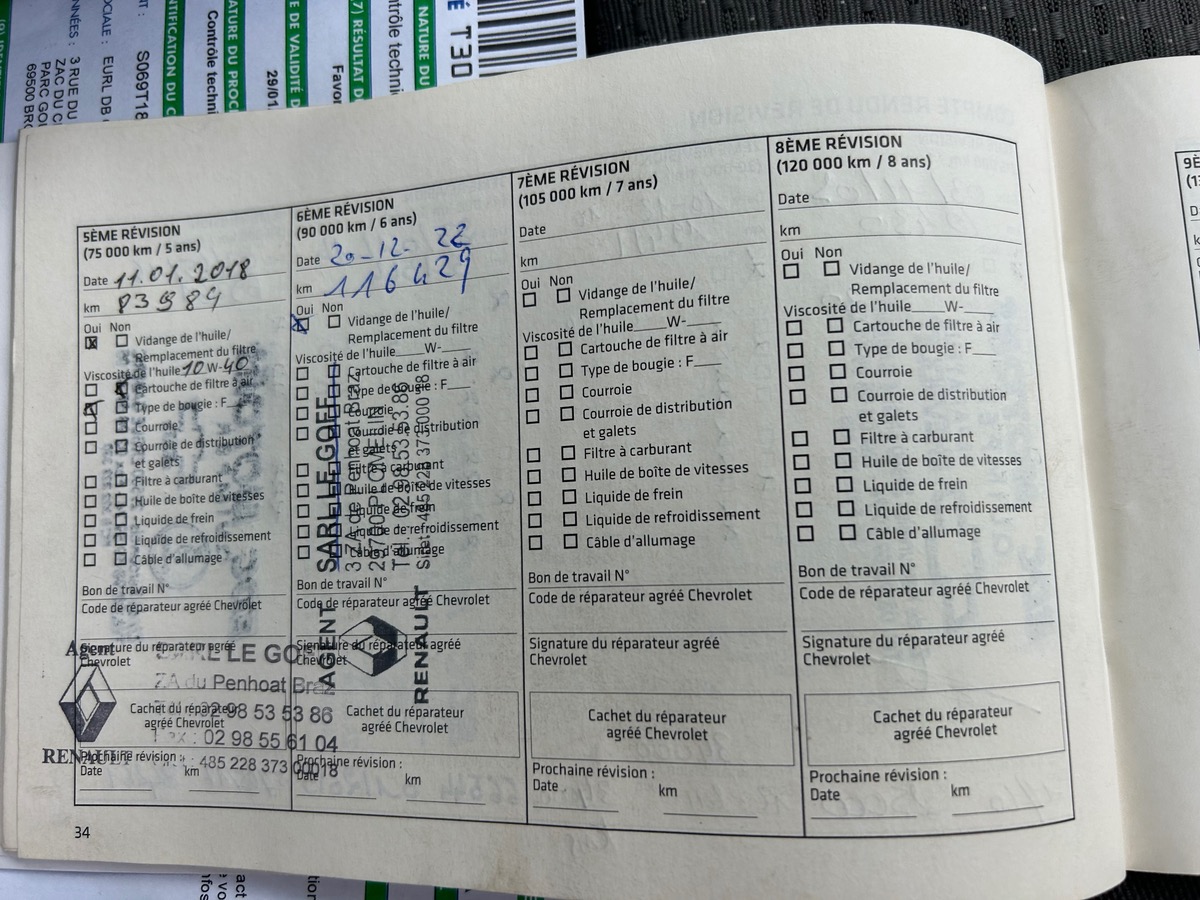 T30
NATURE DU
ontrôle technic
7) RÉSULTAT D
Favor
E DE VALIDITÉ D
29/01
ATURE DU PROC
Contrôle techni
NTIFICATION DU C
S069T18
OCIALE : EURL DB
ONNÉES : 3 RUE DU
ZAC DU C
PARC GO
69500 BRO
5ÈME RÉVISION
(75 000 km / 5 ans)
Date 11.01.2018
km 83984
Oui Non
Vidange de l'huile/
Remplacement du filtre
Viscosité de l'huile 10 W-40
Cartouche de filtre à air
Type de bougie : F
Courroie
Courroie de distribution
et galets
Filtre à carburant
Huile de boîte de vitesses
Liquide de frein
Liquide de refroidissement
Câble d'allumage
Bon de travail N°
Code de réparateur agréé Chevrolet
Signature du réparateur agréé
Chevrolet
Cachet du réparateur
agréé Chevrolet
Prochaine révision :
Date km
Agent
RENAULT
LE GO
ZA du Penhoat Braz
02 98 53 53 86
02 98 55 61 04
485 228 373 00018
6ÈME RÉVISION
(90 000 km / 6 ans)
Date 20-12. 22
km 116429
Oui Non
Vidange de l'huile/
Remplacement du filtre
Viscosité de l'huile____W-____
Cartouche de filtre à air
Type de bougie : F___
Courroie
Courroie de distribution
et galets
Filtre à carburant
Huile de boîte de vitesses
Liquide de frein
Liquide de refroidissement
Câble d'allumage
Bon de travail N°
Code de réparateur agréé Chevrolet
Signature du réparateur agréé
Chevrolet
Cachet du réparateur
agréé Chevrolet
Prochaine révision :
Date km
AGENT SARL LE GOFF
3 ZA de Penhoat Braz
Tél. 02.98.53.53.86
RENAULT Siret 485 228 373 000 18
7ÈME RÉVISION
(105 000 km / 7 ans)
Date
km
Oui Non
Vidange de l'huile/
Remplacement du filtre
Viscosité de l'huile____W-____
Cartouche de filtre à air
Type de bougie : F___
Courroie
Courroie de distribution
et galets
Filtre à carburant
Huile de boîte de vitesses
Liquide de frein
Liquide de refroidissement
Câble d'allumage
Bon de travail N°
Code de réparateur agréé Chevrolet
Signature du réparateur agréé
Chevrolet
Cachet du réparateur
agréé Chevrolet
Prochaine révision :
Date km
8ÈME RÉVISION
(120 000 km / 8 ans)
Date
km
Oui Non
Vidange de l'huile/
Remplacement du filtre
Viscosité de l'huile____W-____
Cartouche de filtre à air
Type de bougie : F___
Courroie
Courroie de distribution
et galets
Filtre à carburant
Huile de boîte de vitesses
Liquide de frein
Liquide de refroidissement
Câble d'allumage
Bon de travail N°
Code de réparateur agréé Chevrolet
Signature du réparateur agréé
Chevrolet
Cachet du réparateur
agréé Chevrolet
Prochaine révision :
Date km
34
9È